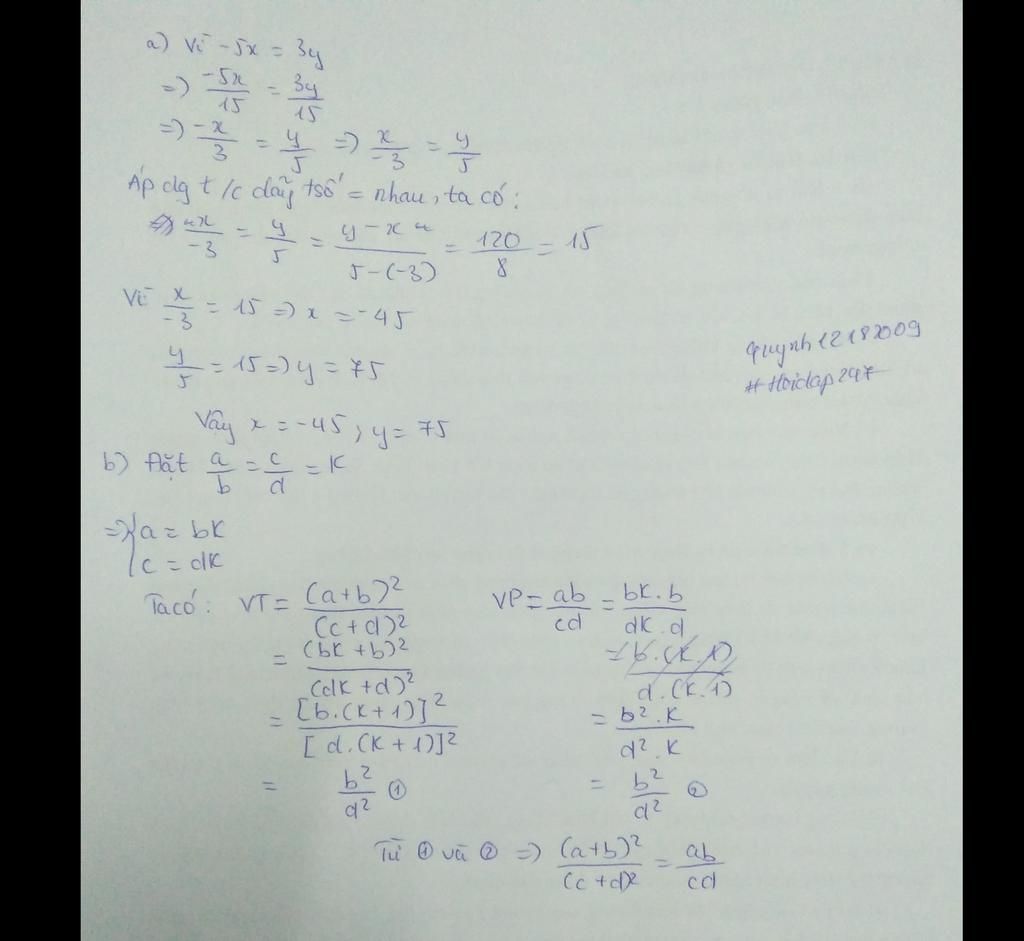 a) Vì -5x = 3y
=> -5x/15 = 3y/15
=> -x/3 = y/5 => x/-3 = y/5
Áp dg t/c dãy tsố = nhau, ta có:
x/-3 = y/5 = y-x/5-(-3) = 120/8 = 15
Vì x/-3 = 15 => x = -45
y/5 = 15 => y = 75
quynh12182009
#Hoidap247
Vậy x = -45, y = 75
b) Đặt a/b = c/d = k
=> { a = bk
c = dk
Ta có: VT = (a+b)²/(c+d)²
= (bk+b)²/(dk+d)²
= [b.(k+1)]²/[d.(k+1)]²
= b²/d² ①
VP = ab/cd = bk.b/dk.d
= b.(k.1)/d.(k.1)
= b².k/d².k
= b²/d² ②
Từ ① và ② => (a+b)²/(c+d)² = ab/cd